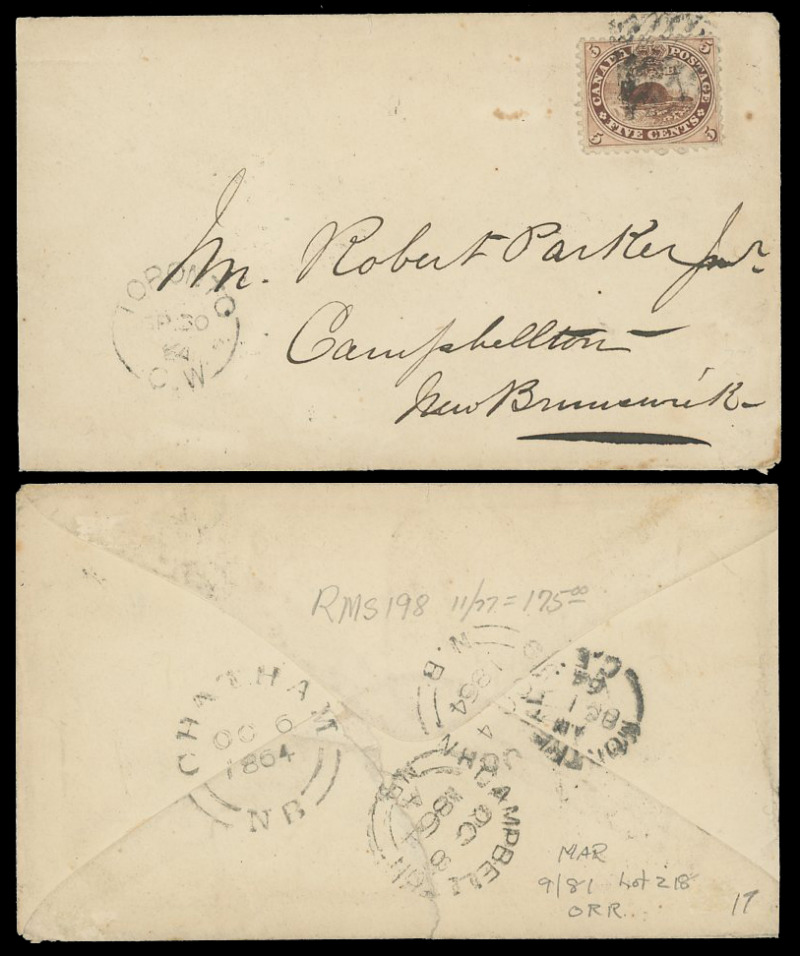 5 CANADA POSTAGE 5
5 FIVE CENTS 5
Mr. Robert Parker Junr.
Campbellton
New Brunswick
TORONTO
SP 30
64
C.W
RMS198 11/77 = 175.00
CHATHAM
OC 6
1864
NB
JOHN
4
1864
N.B
MONTREAL
AM
OC 1
64
C.E
CAMPBELLTON
OC 8
1864
NB
MAR
9/81 Lot 218
ORR
17